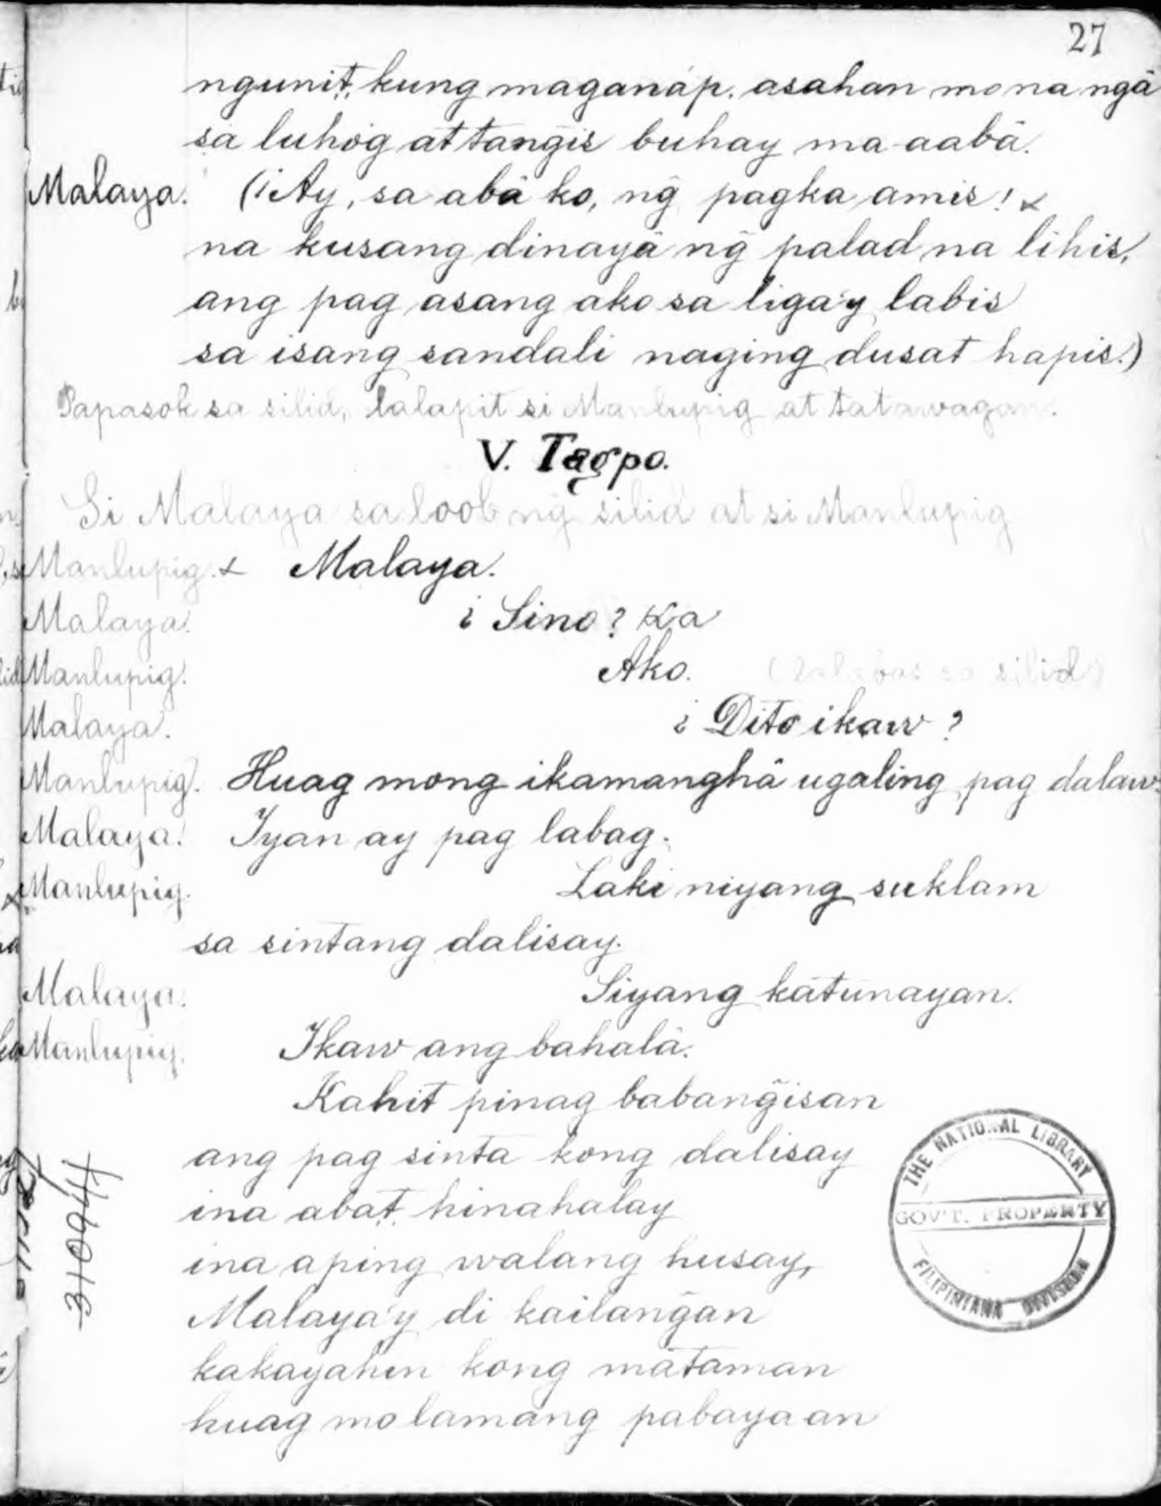 27
ngunit, kung maganáp. asahan mo na ngâ
sa luhog at tang̃is buhay ma-aabâ.
Malaya. (¡Ay, sa abâ ko, ng̃ pagka amis!
na kusang dinayâ ng̃ palad na lihis,
ang pag asang ako sa liga'y labis
sa isang sandali naging dusat hapis.)
Papasok sa silid, lalapit si Manlupig at tatawagan.
V. Tagpo.
Si Malaya sa loob ng̃ silid at si Manlupig
Manlupig. Malaya.
Malaya. ¿Sino? Ka
Manlupig. Ako. (Lalabas sa silid)
Malaya. ¿Dito ikaw?
Manlupig. Huag mong ikamanghâ ugaling pag dalaw.
Malaya. Iyan ay pag labag.
Manlupig. Laki niyang suklam
sa sintang dalisay.
Malaya. Siyang katunayan.
Manlupig. Ikaw ang bahalà.
Kahit pinag babang̃isan
ang pag sinta kong dalisay
ina abat hinahalay
ina aping walang husay,
Malaya'y di kailang̃an
kakayahin kong mataman
huag mo lamang pabayaan
31094
THE NATIONAL LIBRARY
GOV'T. PROPERTY
FILIPINIANA DIVISION